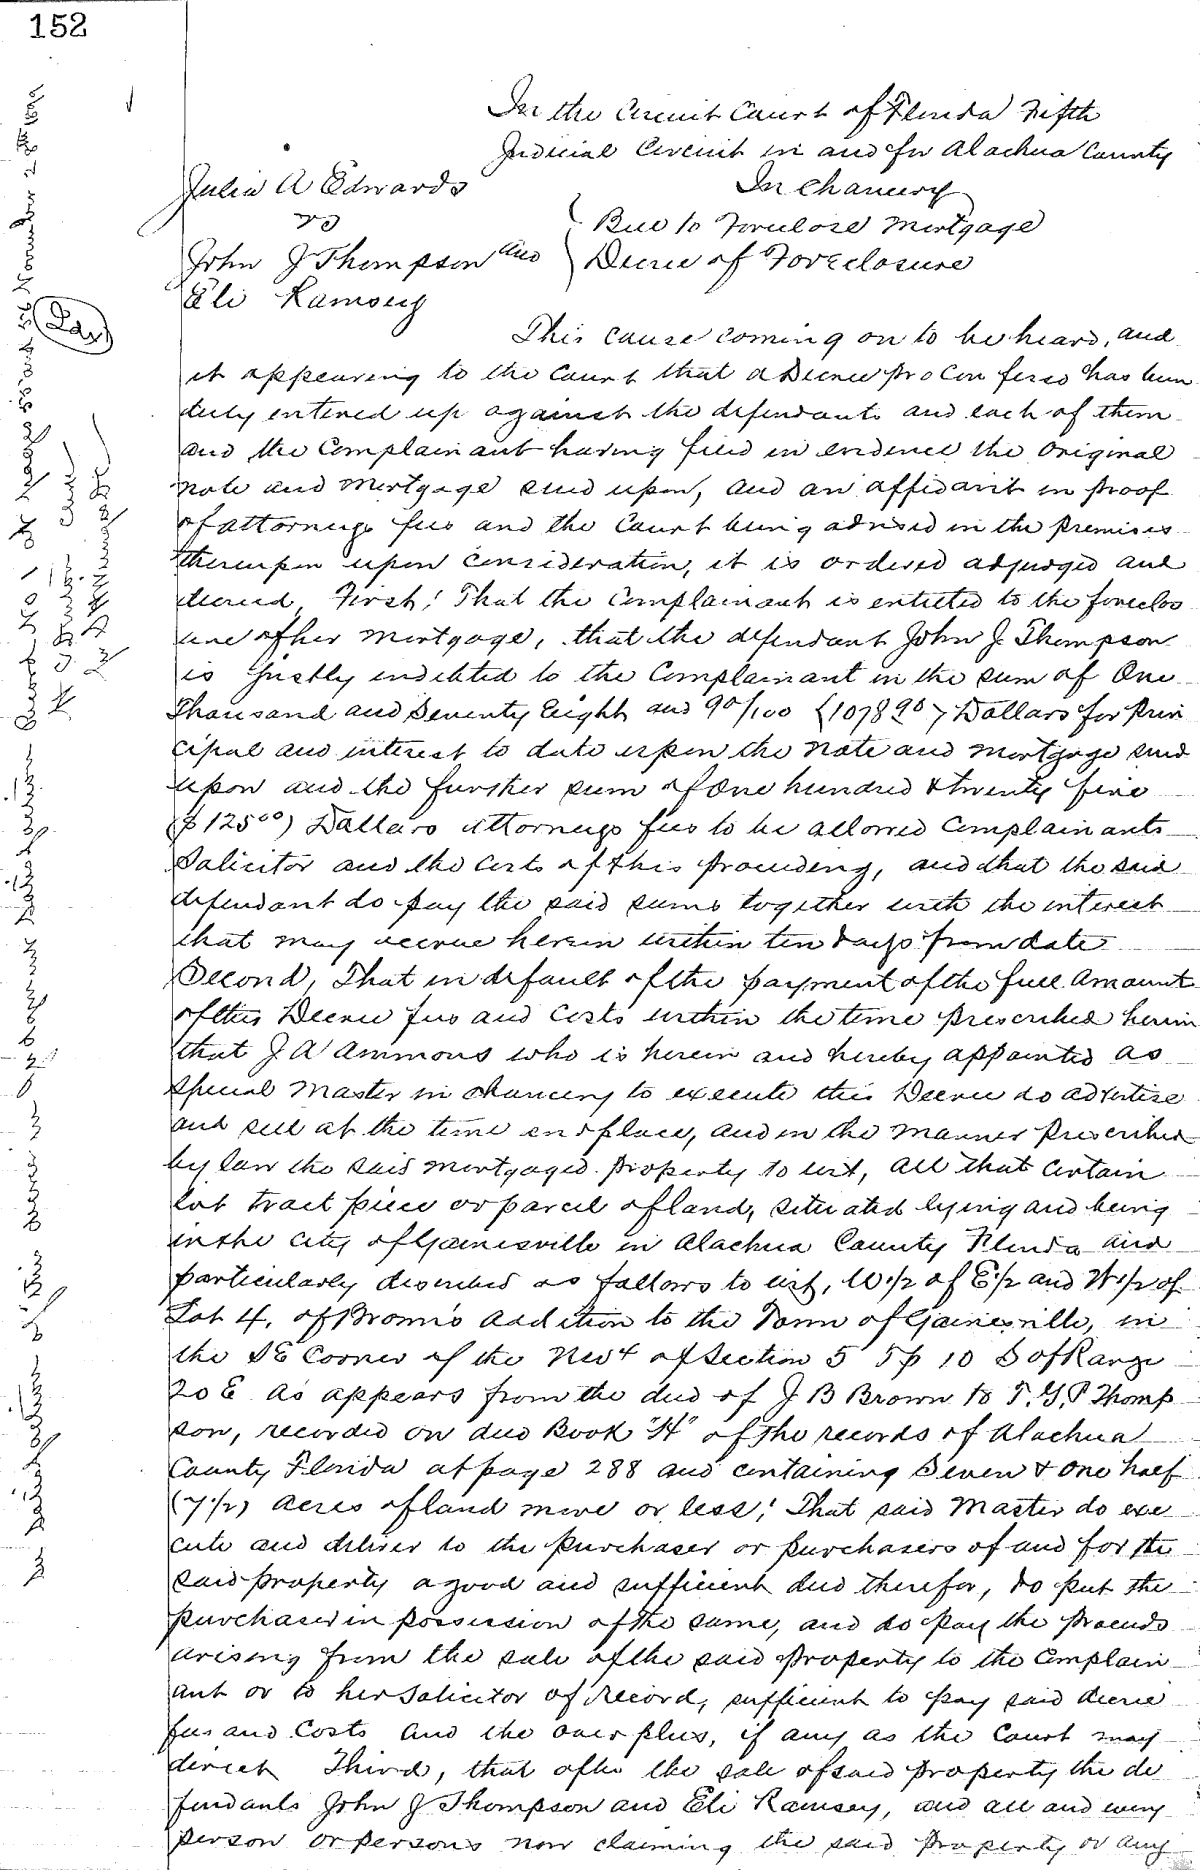 152
In the Circuit Court of Florida Fifth
Judicial Circuit in and for Alachua County
Julia A Edwards
In Chancery
vs
Bill to Foreclose Mortgage
John J Thompson and
Decree of Foreclosure
Eli Ramsey
This cause coming on to be heard, and
it appearing to the Court that a Decree Pro Confesso has been
duly entered up against the defendants and each of them
and the Complainant having filed in evidence the original
note and mortgage sued upon, and an affidavit in proof
of attorneys fees and the Court being advised in the premises
thereupon upon consideration, it is ordered adjudged and
decreed, First: That the Complainant is entitled to the foreclos
ure of her mortgage, that the defendant John J Thompson
is justly indebted to the Complainant in the sum of One
Thousand and Seventy Eight and 90/100 (1078 90) Dollars for prin
cipal and interest to date upon the note and mortgage sued
upon and the further sum of One hundred & twenty five
($125 00) Dollars attorneys fees to be allowed Complainants
Solicitor and the Costs of this proceeding, and that the said
defendant do pay the said sums together with the interest
that may accrue herein within ten days from date
Second, That in default of the payment of the full amount
of this Decree fees and Costs within the time prescribed herein
that J A Ammons who is herein and hereby appointed as
special Master in chancery to execute this Decree do advertise
and sell at the time and place, and in the manner prescribed
by law the said mortgaged property to wit, all that certain
lot tract piece or parcel of land, situated lying and being
in the city of Gainesville in Alachua County Florida and
particularly described as follows to wit, W 1/2 of E 1/2 and W 1/2 of
Lot 4, of Brown's addition to the Town of Gainesville, in
the SE Corner of the NW 4 of Section 5 Tp 10 S of Range
20 E as appears from the deed of J B Brown to T. G. P Thomp
son, recorded on deed Book "H" of the records of Alachua
County Florida at page 288 and containing Seven & one half
(7 1/2) acres of land more or less; That said Master do exe
cute and deliver to the purchaser or purchasers of and for the
said property a good and sufficient deed therefor, to put the
purchaser in possession of the same, and do pay the proceeds
arising from the sale of the said property to the Complain
ant or to her Solicitor of Record, sufficient to pay said decree
fees and Costs and the over plus, if any as the Court may
direct Third, that after the sale of said property the de
fendants John J Thompson and Eli Ramsey, and all and every
person or persons now claiming the said property or any